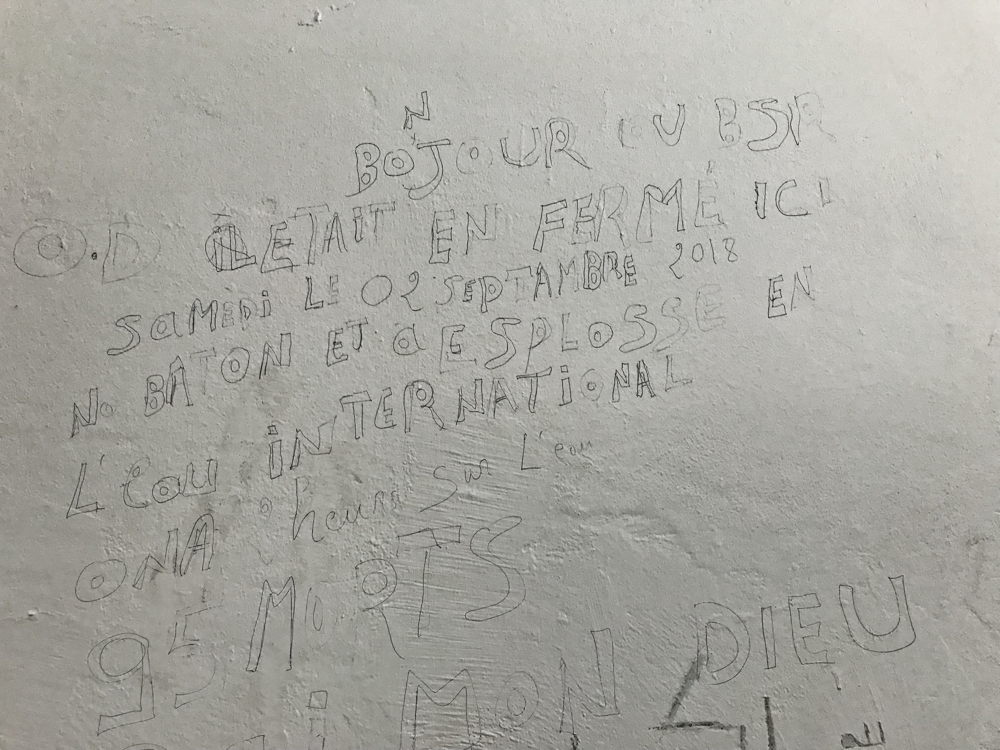 BONJOUR DU BSR
O.D IL ETAIT EN FERMÉ ICI
SAMEDI LE 02 SEPTAMBRE 2018
No BATON ET a ESPLOSSE EN
L'eau iNTERNATiONAL
ONA 0 heure Sur L'eau
95 MORTS
MON DIEU